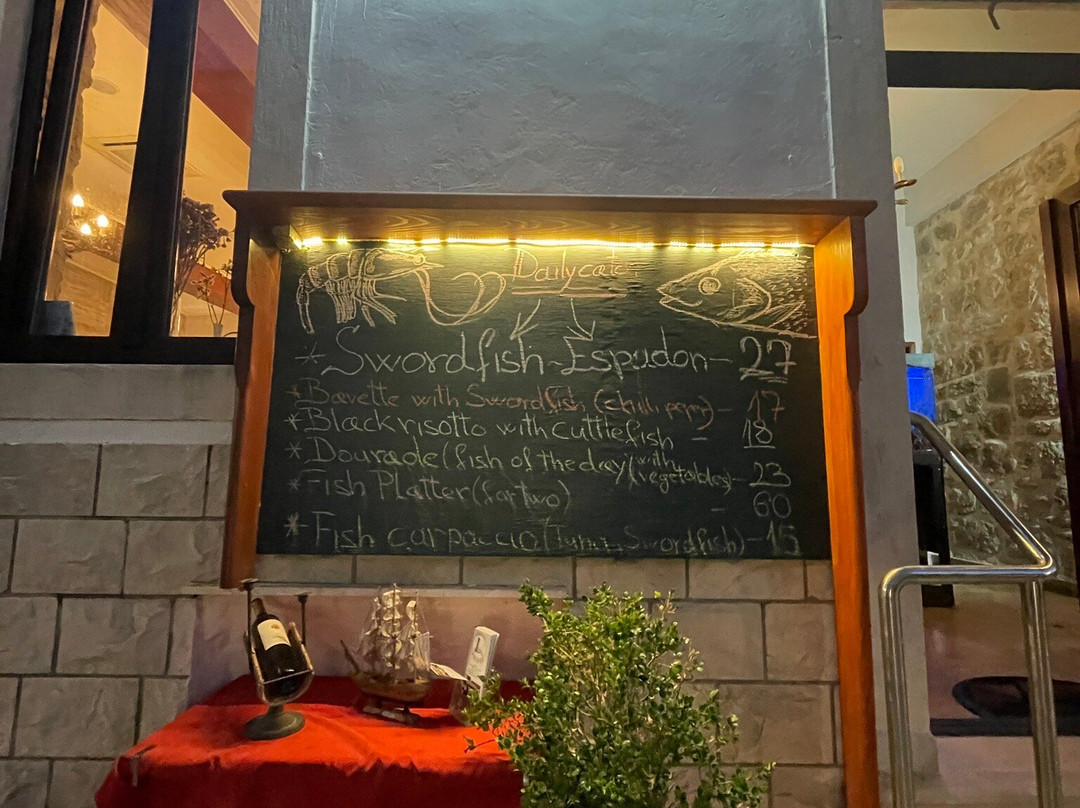 Daily catch
* Swordfish - Espadon - 27
* Bavette with Swordfish (chilli peper) - 17
* Black risotto with cuttlefish - 18
* Dourade (fish of the day) (with vegetables) - 23
* Fish Platter (for two) - 60
* Fish carpaccio (Tuna, Swordfish) - 15